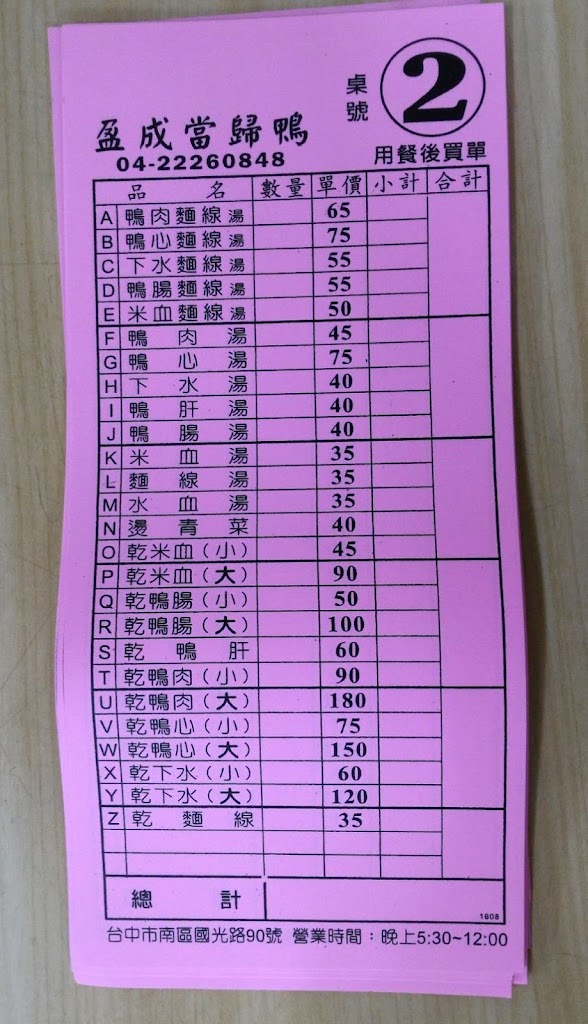 桌號 2
盈成當歸鴨
04-22260848 用餐後買單
品名 數量 單價 小計 合計
A 鴨肉麵線湯 65
B 鴨心麵線湯 75
C 下水麵線湯 55
D 鴨腸麵線湯 55
E 米血麵線湯 50
F 鴨肉湯 45
G 鴨心湯 75
H 下水湯 40
I 鴨肝湯 40
J 鴨腸湯 40
K 米血湯 35
L 麵線湯 35
M 水血湯 35
N 燙青菜 40
O 乾米血(小) 45
P 乾米血(大) 90
Q 乾鴨腸(小) 50
R 乾鴨腸(大) 100
S 乾鴨肝 60
T 乾鴨肉(小) 90
U 乾鴨肉(大) 180
V 乾鴨心(小) 75
W 乾鴨心(大) 150
X 乾下水(小) 60
Y 乾下水(大) 120
Z 乾麵線 35
總計
1608
台中市南區國光路90號 營業時間：晚上5:30~12:00